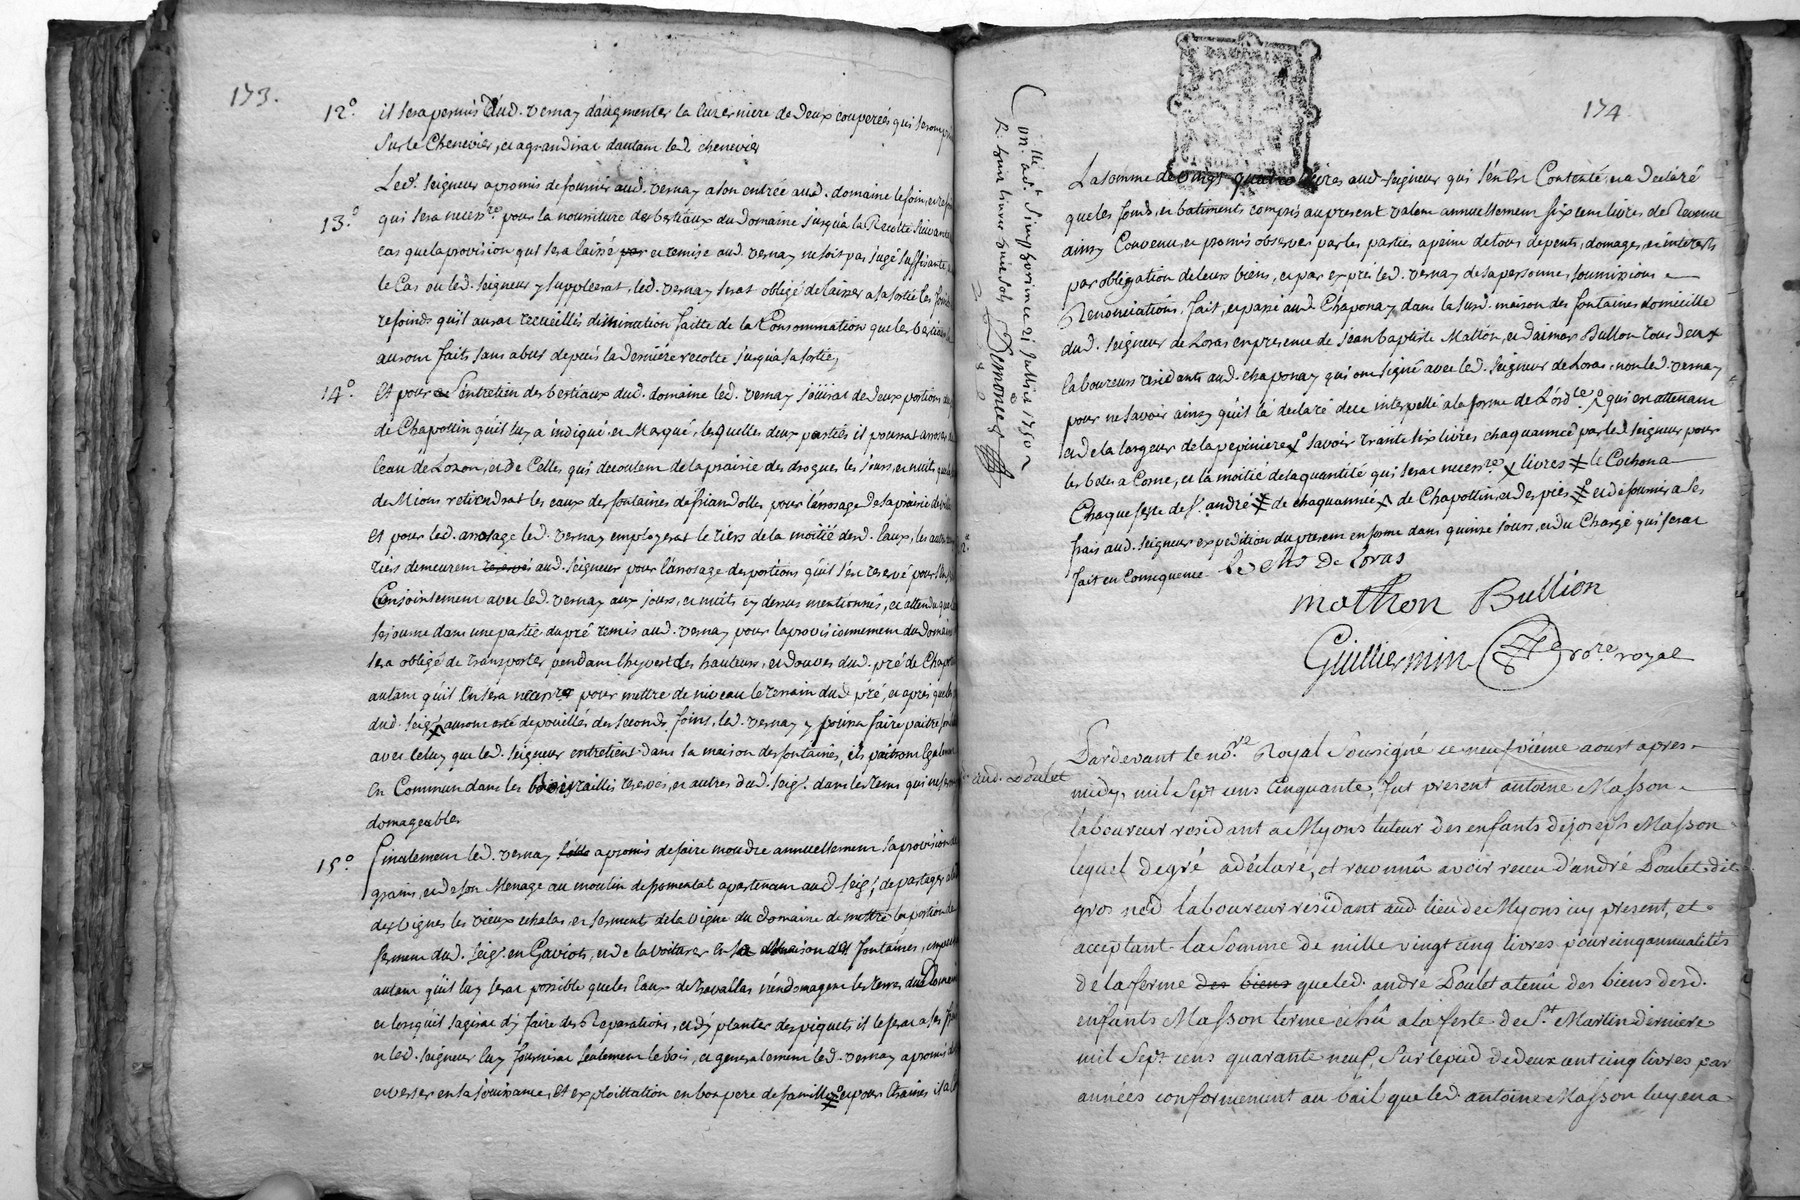 173.
12° il sera permis aud. vernay daugmenter la luzerniere de deux couperées qui seront
sur le Chenevier, et agrandirat dautant led chenevier
13° Led. seigneur a promis de fournir aud. vernay a son entrée aud. domaine le foin, et
qui sera necessre pour la nourriture des bestiaux du domaine jusqu'a la Recolte suivante
cas que la provision qui sera laissé par et remise aud. vernay ne soit pas jugé suffisante
le Cas ou led. seigneur y suppleerat, led. vernay serat obligé de laisser a sa sortie les foins
refoinds qu'il aurat recueillis diminution faitte de la Consommation que les bestiaux
auront faits sans abus depuis la derniére recolte jusqua sa sortie,
14° Et pour l'entretien des bestiaux dud. domaine led. vernay joüirat de deux portions
de Chapollin qu'il luy a indiqué et Marqué, lesquelles deux parties il pourrat arroser
leau de Lozon, et de Celles qui decoulent de la prairie des drogues les jours, et nuits que
de Mions retiendrat les eaux de fontaines de friandolles pour l'arrosage de la prairie
Et pour led. arrosage led. vernay employerat le tiers de la moitié desd. Eaux, les autres
tiers demeurent reservés aud. seigneur pour l'arrosage des portions qu'il s'est reservé pour
Conjointement avec led. vernay aux jours, et nuits cy dessus mentionnés, et attendu que
sejourne dans une partie du pré remis aud. vernay pour la provisionnement du domaine
sera obligé de transporter pendant lhyvert des hauteurs, et douves dud. pré de Chapollin
autant qu'il en sera necessre pour mettre de niveau le terrain dud pré, et après que les
dud. seigr auront esté depouillés des seconds foins, led. vernay y pourra faire paitre
avec celuy que led. seigneur entretient dans sa maison des fontaines, ils paitront Egalement
En Commun dans les bois taillis reservés, et autres dud. seigr. dans les tems qui ne
domageables
15° Finalement led. vernay a promis de faire moudre annuellement sa provision
grains, et de son Menage au moulin de pomentat apartenant aud seigr, de partager
des vignes les vieux echalas, et serments de la vigne du domaine de mettre la portion de
serment dud. seigr. en Gaviots, et de la voiturer en sa maison des fontaines,
autant qu'il luy serat possible que les Eaux de n'endomagent les terres du domaine
et lorsqu'il sagirat d'y faire des Reparations, et d'y planter des piquets il le ferat a ses
et led. seigneur luy fournirat seulement le bois, et generalement led. vernay a promis
et verser en sa joüissance, Et exploittation en bon pere de famille et pour

174
Cont.llé ad.t simphorien ce 21 juillet 1750
R. douze livres dix sols Demoncet
La somme de vingt quatre livres aud. seigneur qui s'en est Contenté, et a declaré
que les fonds, et batiments compris au present valent annuellement six cent livres de Revenu
ainsy Convenu, et promis observer par les parties a peine de tous depents, domages, et interests
par obligation de leurs biens, et par exprés led. vernay de sa personne, soumissions
Renonciations. fait, et passé aud. Chaponay dans la susd. maison des fontaines domicille
dud. seigneur de Loras en presence de Jean baptiste Matton, et d'aimar Bullion tous deux
laboureurs residants aud. chaponay qui ont signé avec led. seigneur de Loras, non led. vernay
pour ne savoir ainsy qu'il la declaré de ce interpellé a la forme de L'ordce, qui en attenant
et de la largeur de la pepiniere savoir trante six livres chaquannée par led. seigneur pour
les betes a Corne, et la moitié de la quantité qui serat necessre livres le Cochon a
Chaque feste de st. andré de chaquannée de Chapollin, et des piés et de fournir a ses
frais aud. seigneur expedition du present en forme dans quinze jours, et du Chargé qui serat
fait en Consequence Le chr de Loras
mathon Bullion
Guilliermin nore royal

Pardevant le nore Royal sousigné ce neufviéme aoust apres
aud. Doulet midy, mil sept cens Cinquante, fut present antoine Masson
laboureur residant a Myons tuteur des enfants de joseph Masson
lequel de gré a déclaré, et reconnû avoir receu d'andré Doulet dit
gros ned laboureur residant aud. lieu de Myons icy present, et
acceptant la somme de mille vingt cinq livres pour cinq annualités
de la ferme des biens que led. andré Doulet a tenû des biens desd.
enfants Masson terme échû a la feste de St. Martin derniere
mil sept cens quarante neuf, sur le pied de deux cent cinq livres par
années conformement au bail que led. antoine Masson luy en a